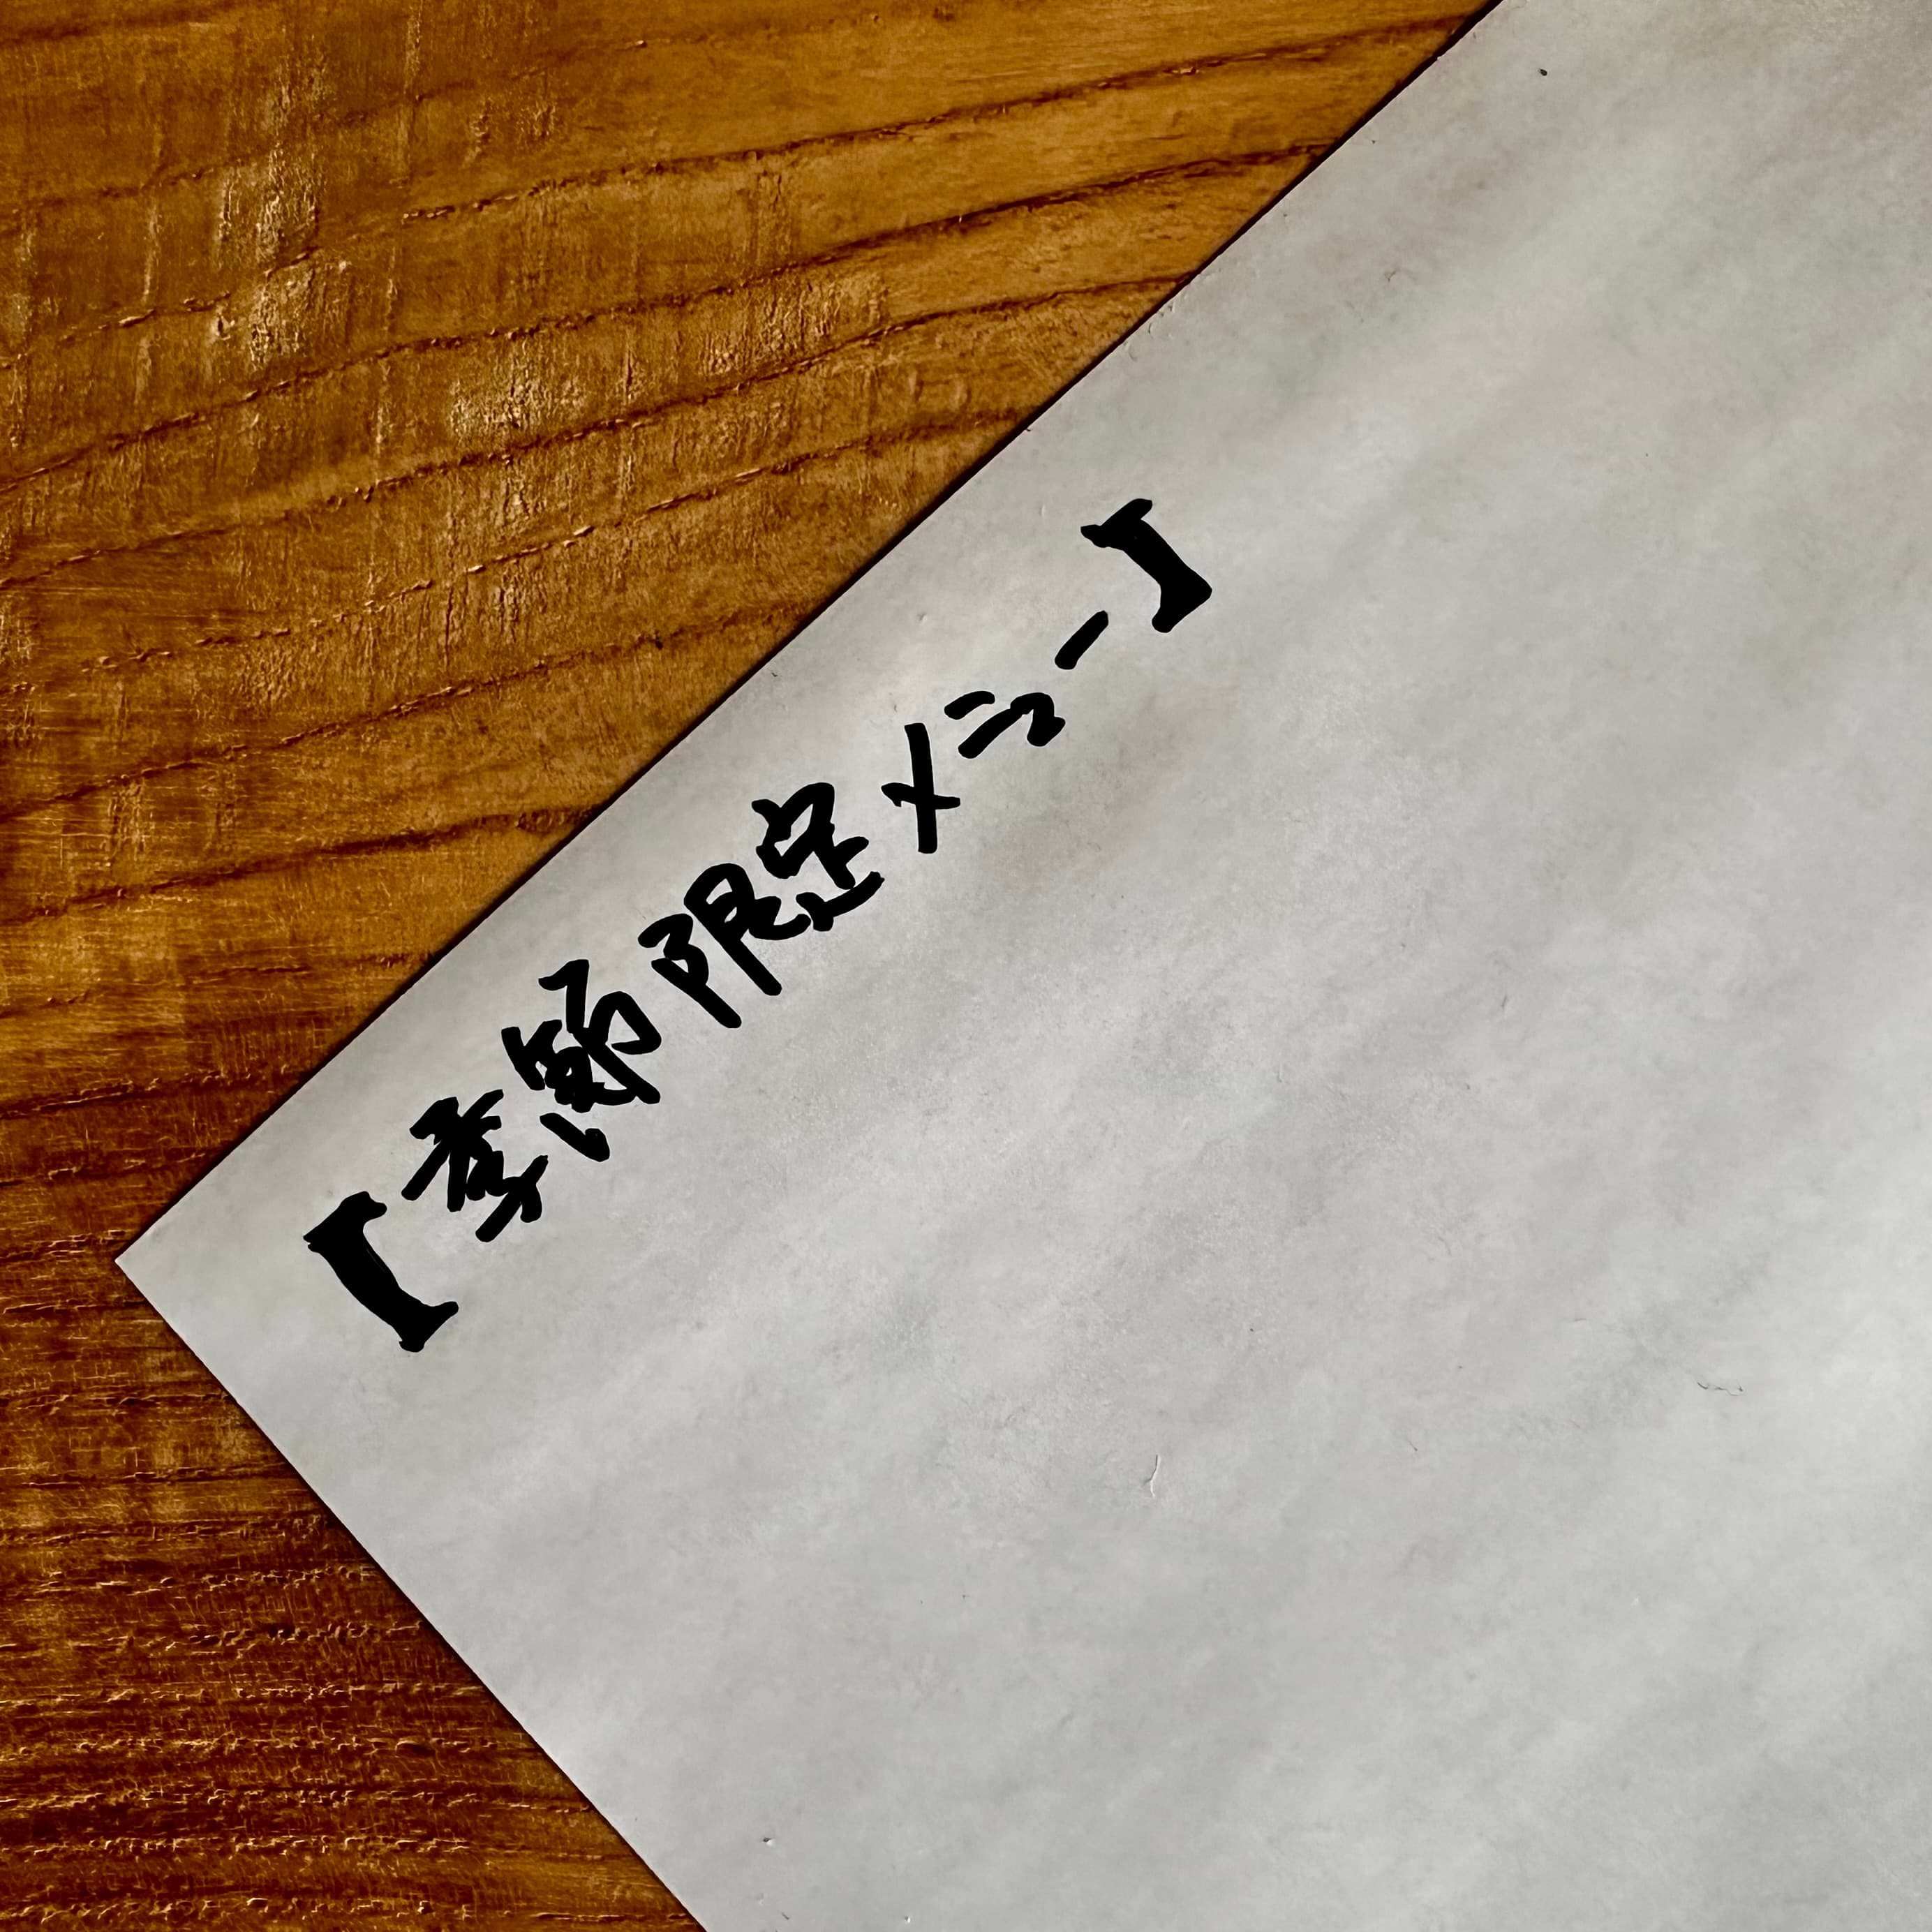 【季節限定メニュー】